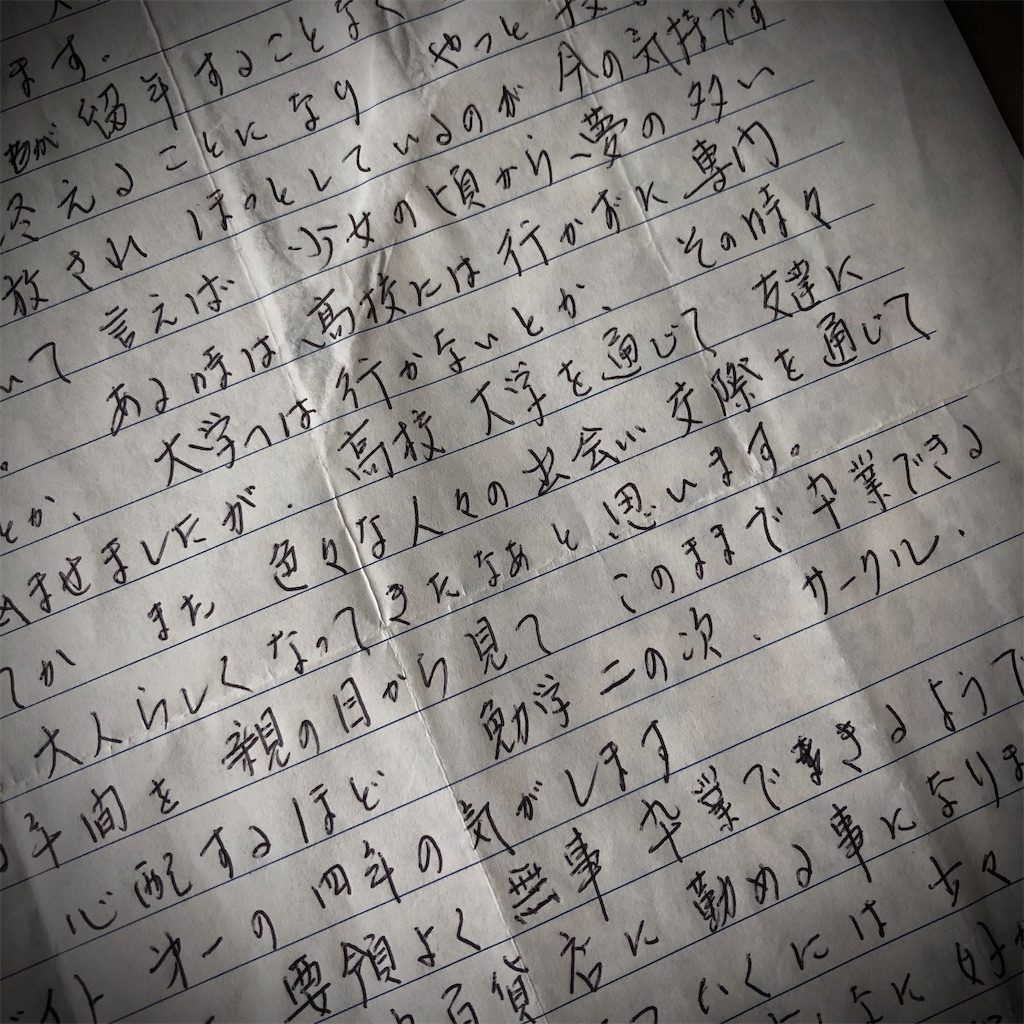 ます。
が 留年することなく
終えることになり やっと
放され ほっとしているのが 今の気持です
いて 言えば 少女の頃から 夢の多い
。 ある時は 高校には行かずに 専門
とか、 大学へは 行かないとか、 その時々
ませましたが、 高校 大学を通じて 友達に
てか また 色々な人々の出会い 交際を通じて
大人らしくなってきたなあと思います。
年間を 親の目から見て このままで 卒業できる
心配するほど 勉学 二の次、 サークル、
イト 第一の 四年の気がします
要領よく 無事 卒業できるようで
百貨店に勤める事になりま
いくには 少々
に好